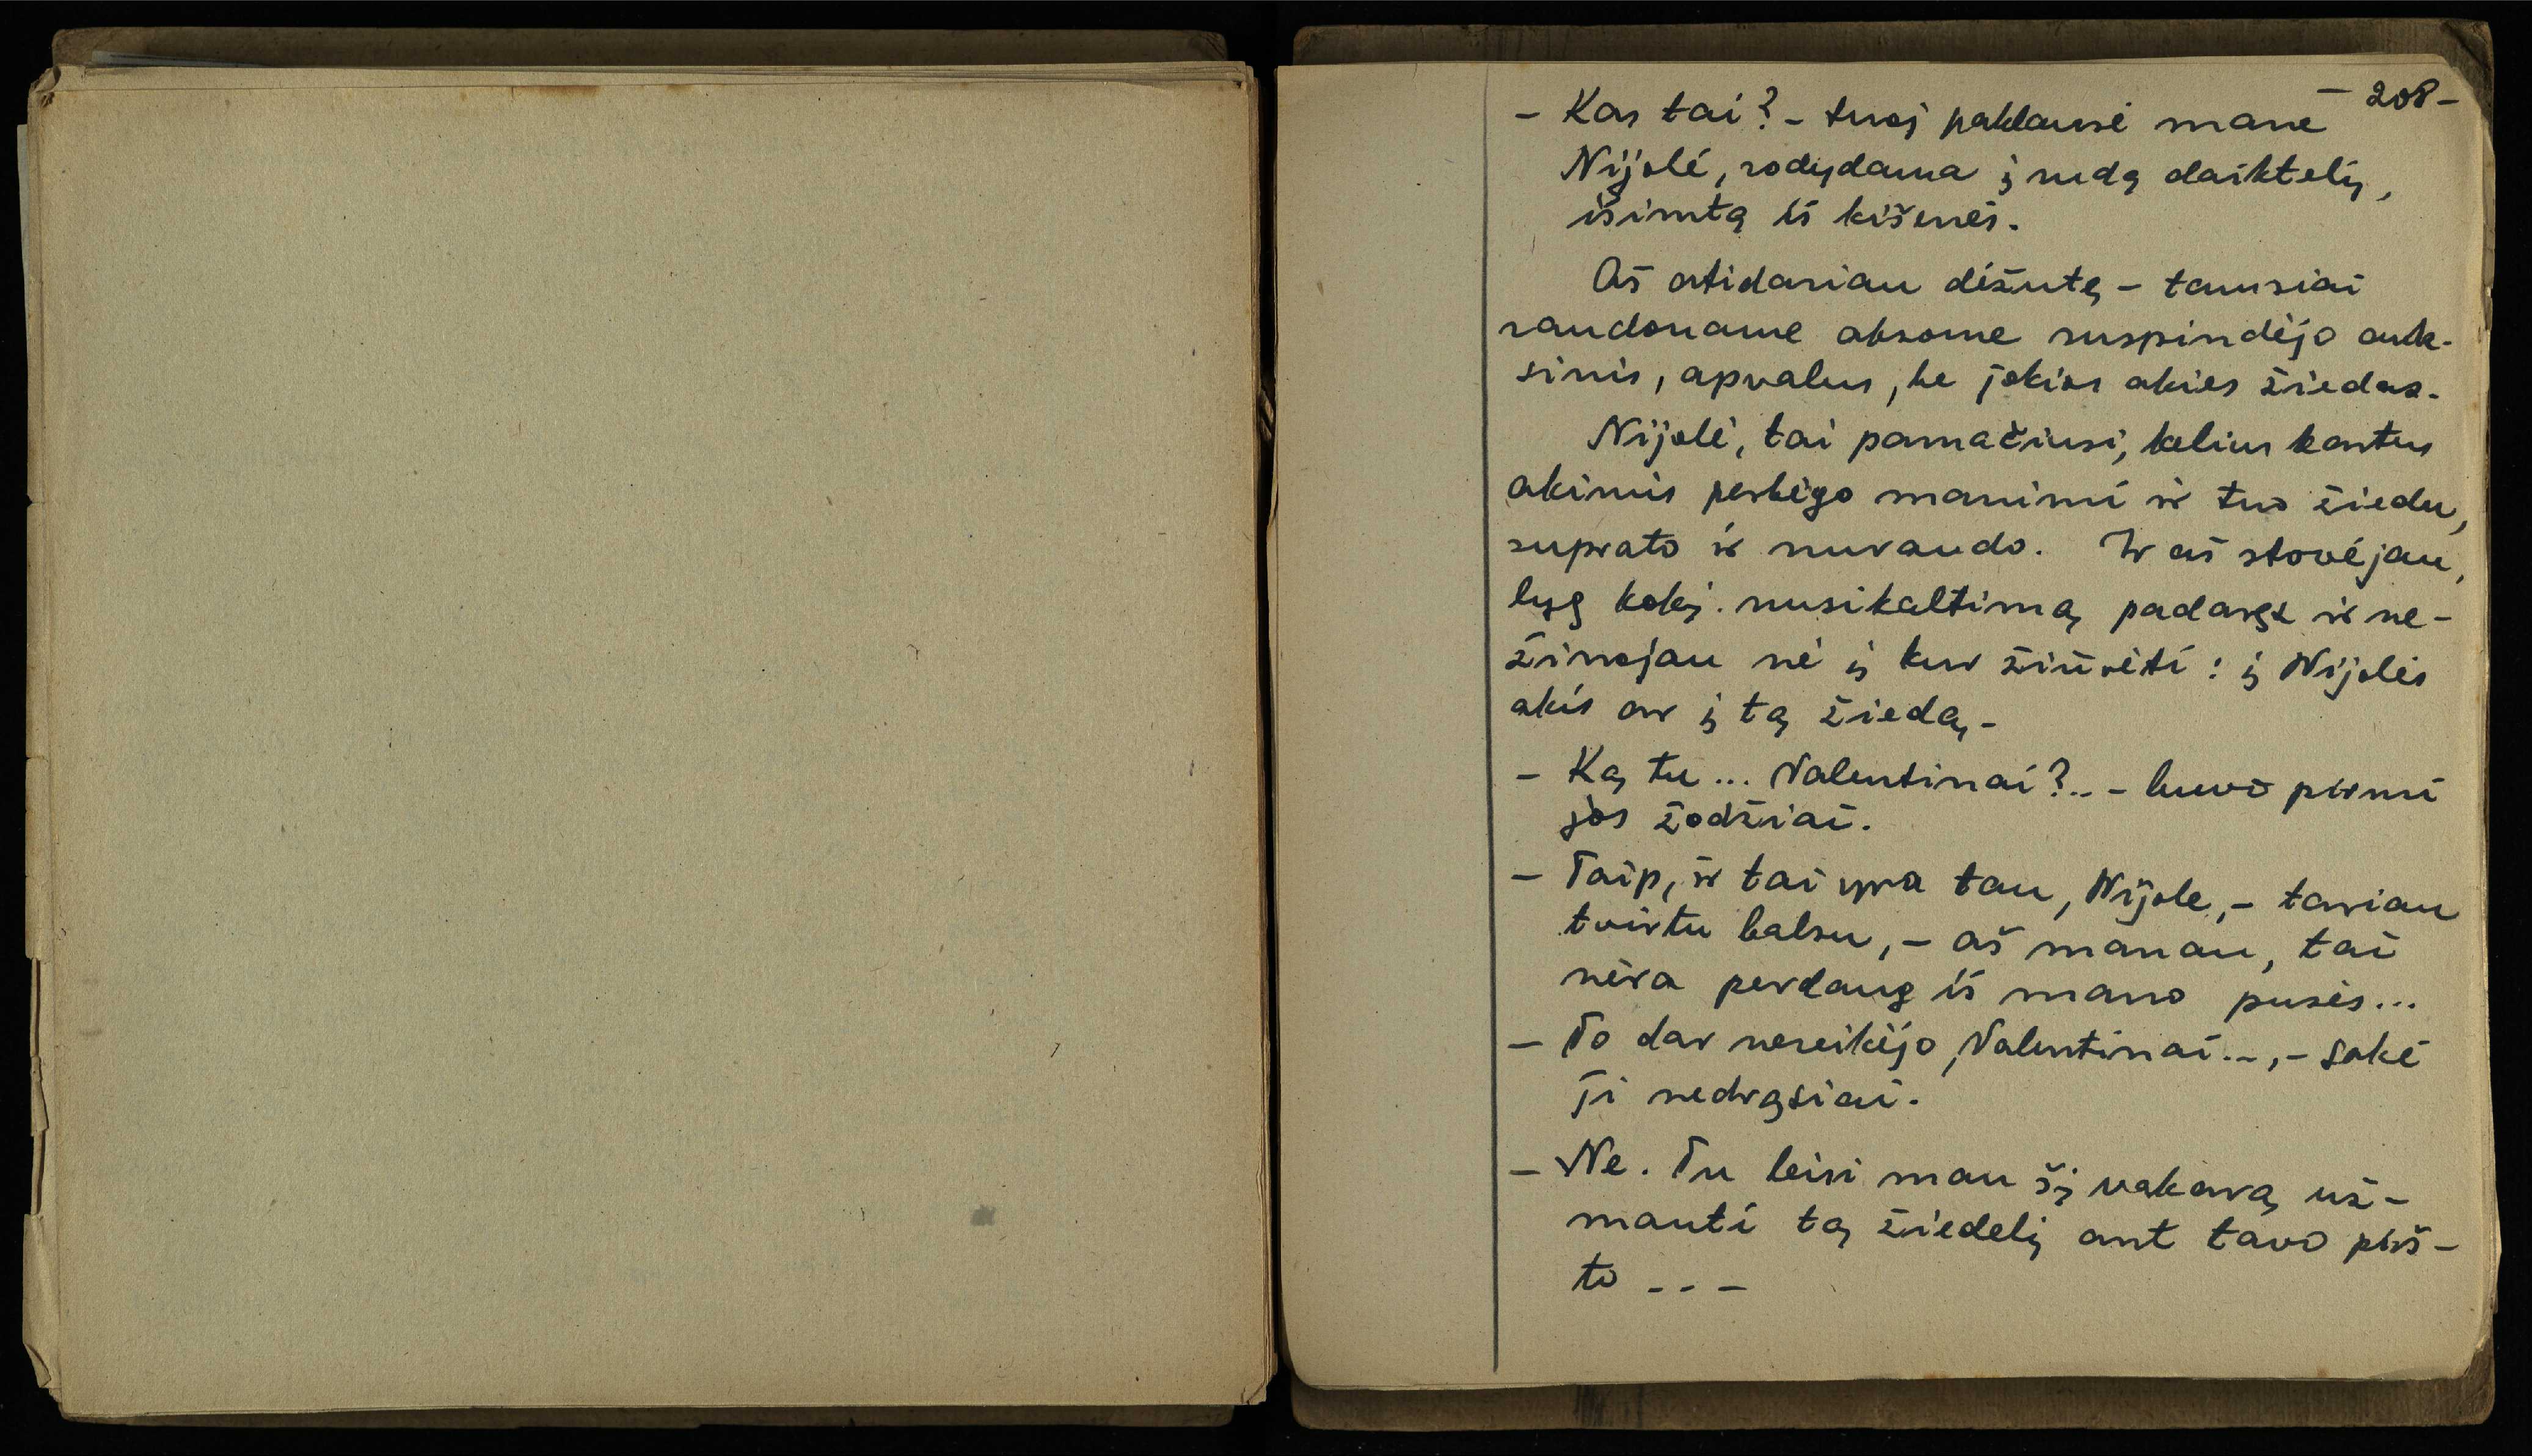 – 208 –
– Kas tai? – tuoj paklausė mane
Nijolė, rodydama į rudą daiktelį,
išimtą iš kišenės.
Aš atidariau dėžutę – tamsiai
raudoname aksome suspindėjo auk-
sinis, apvalus, be jokios akies žiedas.
Nijolė, tai pamačiusi, kelius kartus
akimis perbėgo manimi ir tuo žiedu,
suprato ir nuraudo. Ir aš stovėjau,
lyg kokį nusikaltimą padaręs ir ne-
žinojau nė į kur žiūrėti: į Nijolės
akis ar į tą žiedą. –
– Ką tu... Valentinai?.. – buvo pirmi
jos žodžiai.
– Taip, ir tai yra tau, Nijole, – tariau
tvirtu balsu, – aš manau, tai
nėra perdaug iš mano pusės...
– To dar nereikėjo, Valentinai..., – sakė
ji nedrąsiai.
– Ne. Tu leisi man šį vakarą už-
mauti tą žiedelį ant tavo pirš-
to – – –